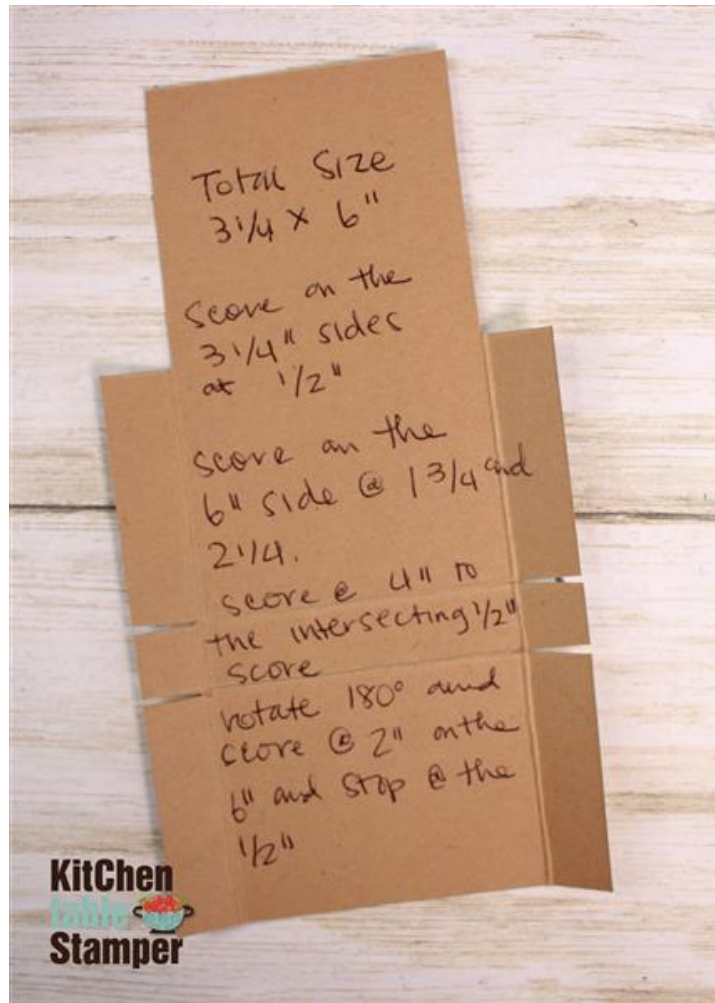 Total Size
3 1/4 x 6"
Score on the
3 1/4" sides
at 1/2"
score on the
6" side @ 1 3/4 and
2 1/4.
score @ 4" to
the intersecting 1/2"
score
rotate 180° and
score @ 2" on the
6" and stop @ the
1/2"
KitChen
table
Stamper